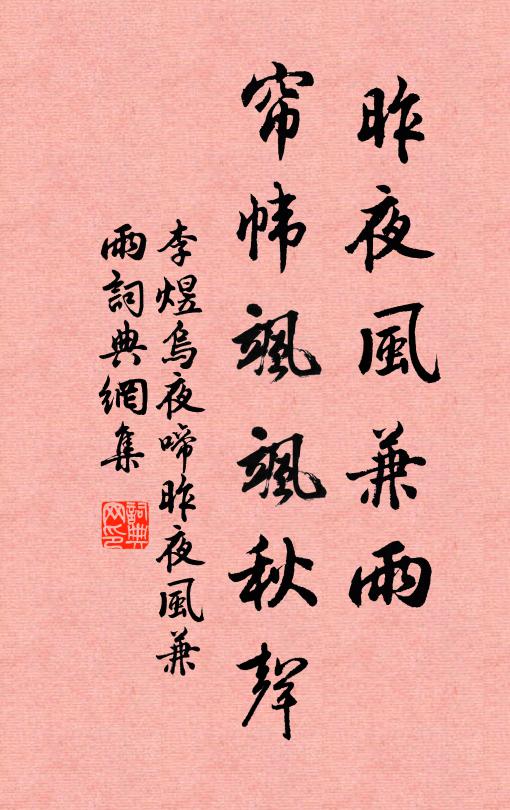 昨夜風兼雨
帘幃颯颯秋聲
李煜烏夜啼昨夜風兼
雨詞典網集
詞典网印